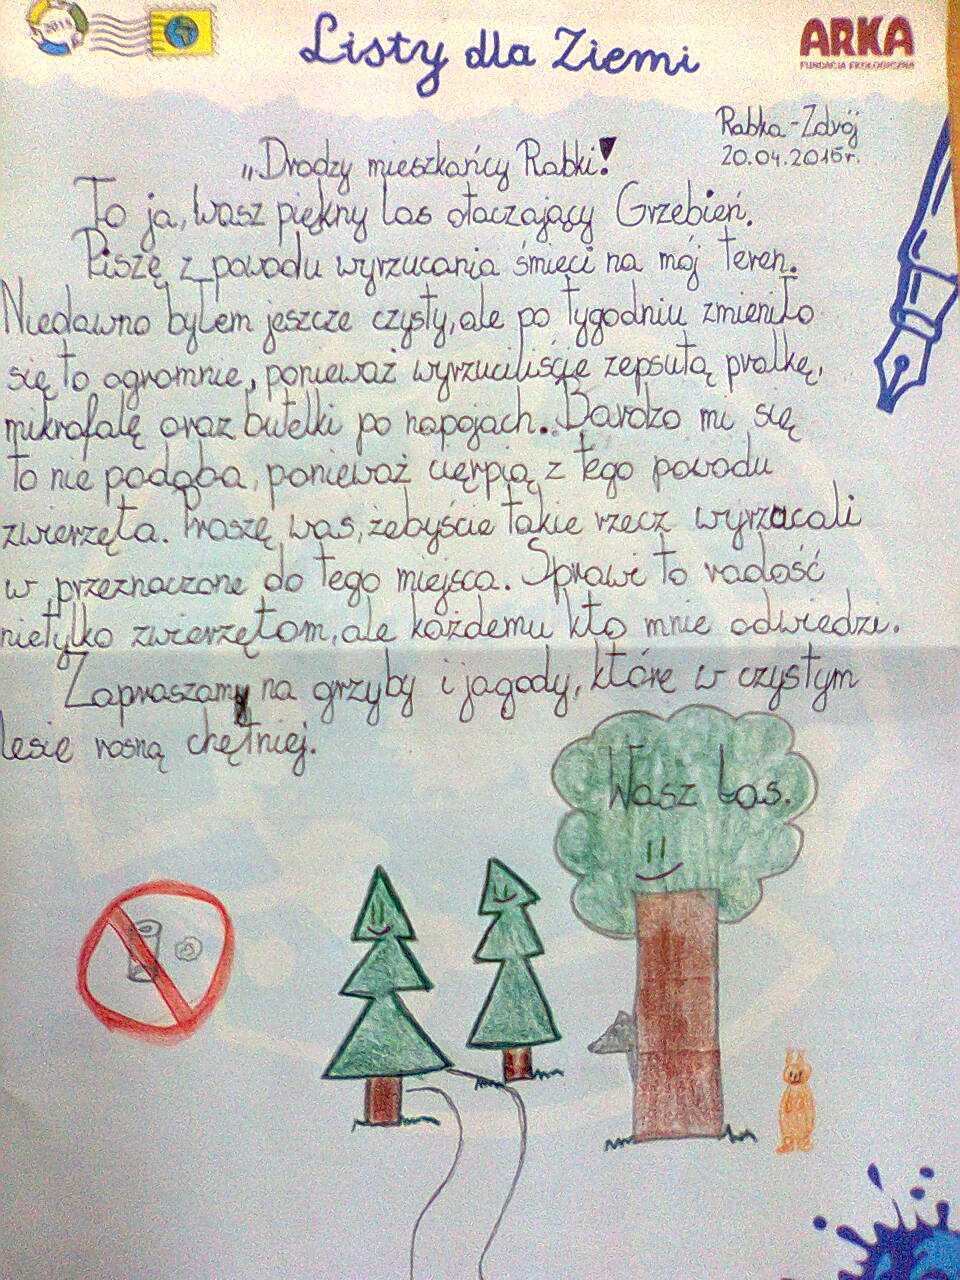 Listy dla Ziemi
ARKA
FUNDACJA EKOLOGICZNA
Rabka-Zdrój
20.04.2015r.
„Drodzy mieszkańcy Rabki!
To ja, Wasz piękny las otaczający Grzebień.
Piszę z powodu wyrzucania śmieci na mój teren.
Niedawno byłem jeszcze czysty, ale po tygodniu zmieniło
się to ogromnie, ponieważ wyrzuciliście zepsutą pralkę,
mikrofalę oraz butelki po napojach. Bardzo mi się
to nie podoba, ponieważ cierpią z tego powodu
zwierzęta. Proszę was, żebyście takie rzecz wyrzucali
w przeznaczone do tego miejsca. Sprawi to radość
nietylko zwierzętom, ale każdemu kto mnie odwiedzi.
Zapraszamy na grzyby i jagody, które w czystym
lesie rosną chętniej.
Wasz Las.